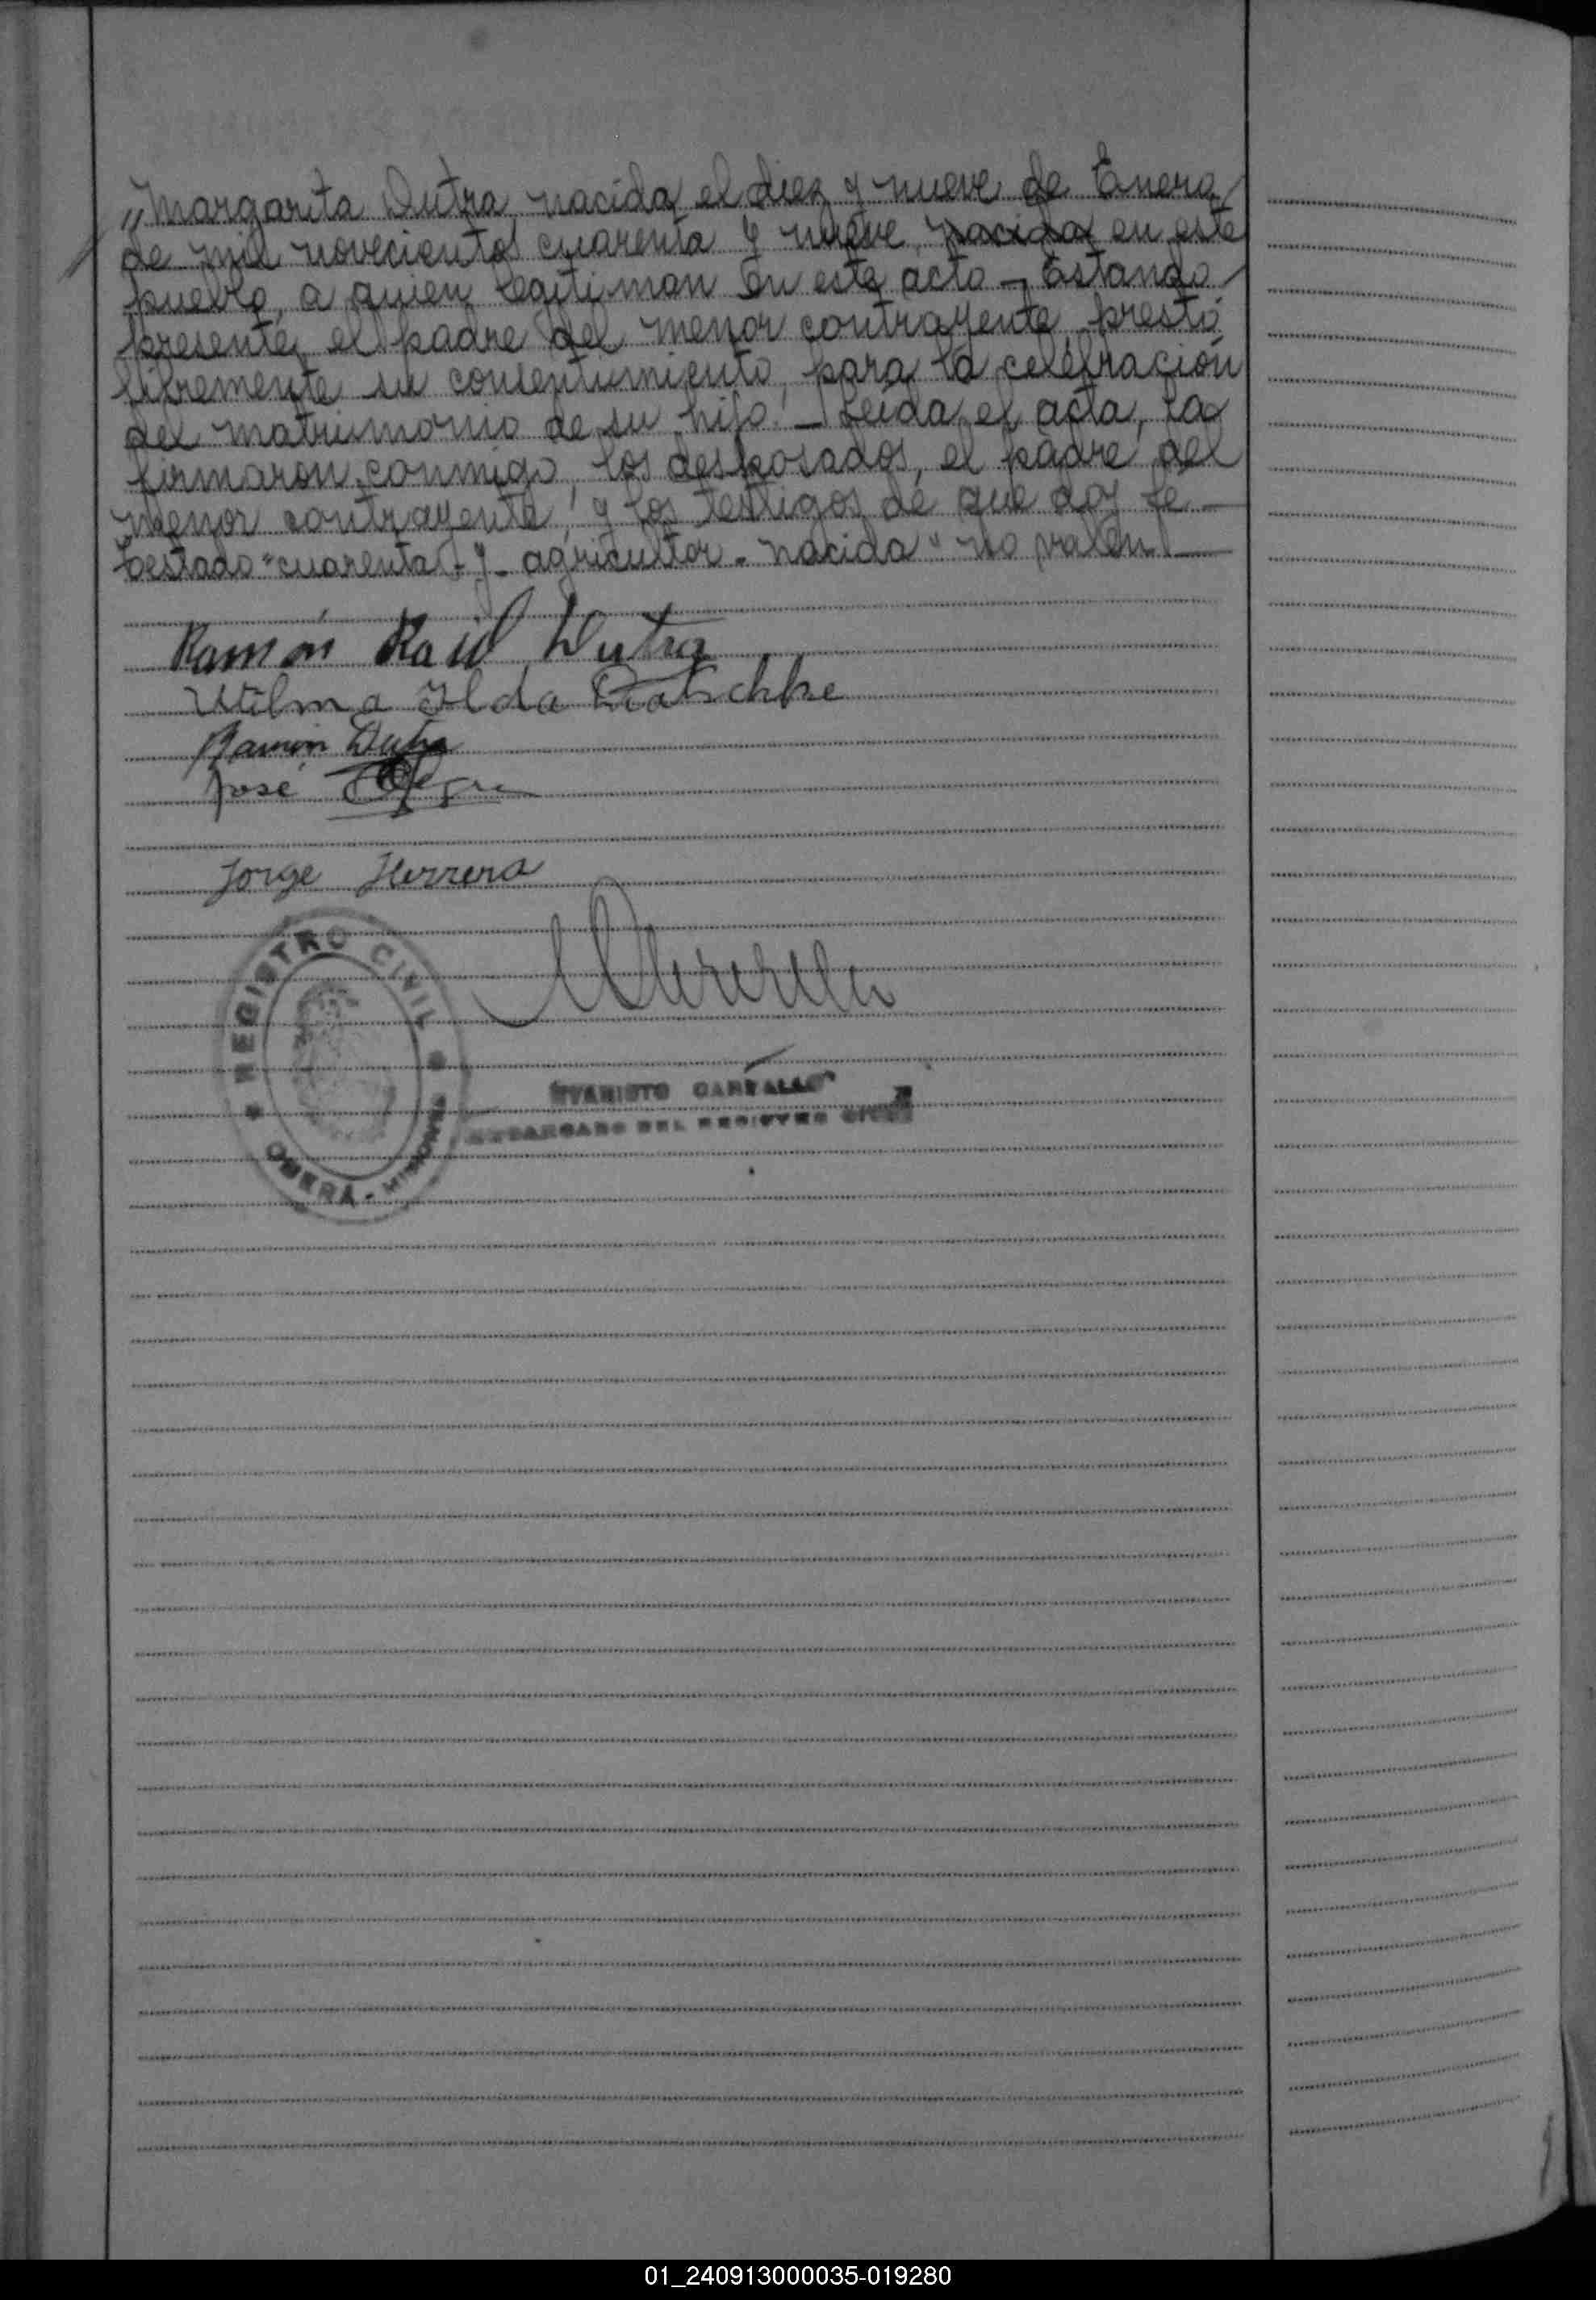 „Margarita Dutra nacida el diez y nueve de Enero
de mil novecientos cuarenta y nueve, nacida en este
pueblo, a quien legitiman en este acto — Estando
presente, el padre del menor contrayente, prestó
libremente su consentimiento, para la celebración
del matrimonio de su hijo. — Leída el acta, la
firmaron conmigo, los desposados, el padre del
menor contrayente, y los testigos de que doy fe —
Testado "cuarenta - y - agricultor - nacida" no valen —
Ramón Raúl Dutra
Wilma Ilda Ratschke
Ramón Dutra
José
Jorge Herrera
REGISTRO CIVIL
OBERA - MISIONES
EVARISTO CARVALLO
ENCARGADO DEL REGISTRO CIVIL
01_240913000035-019280